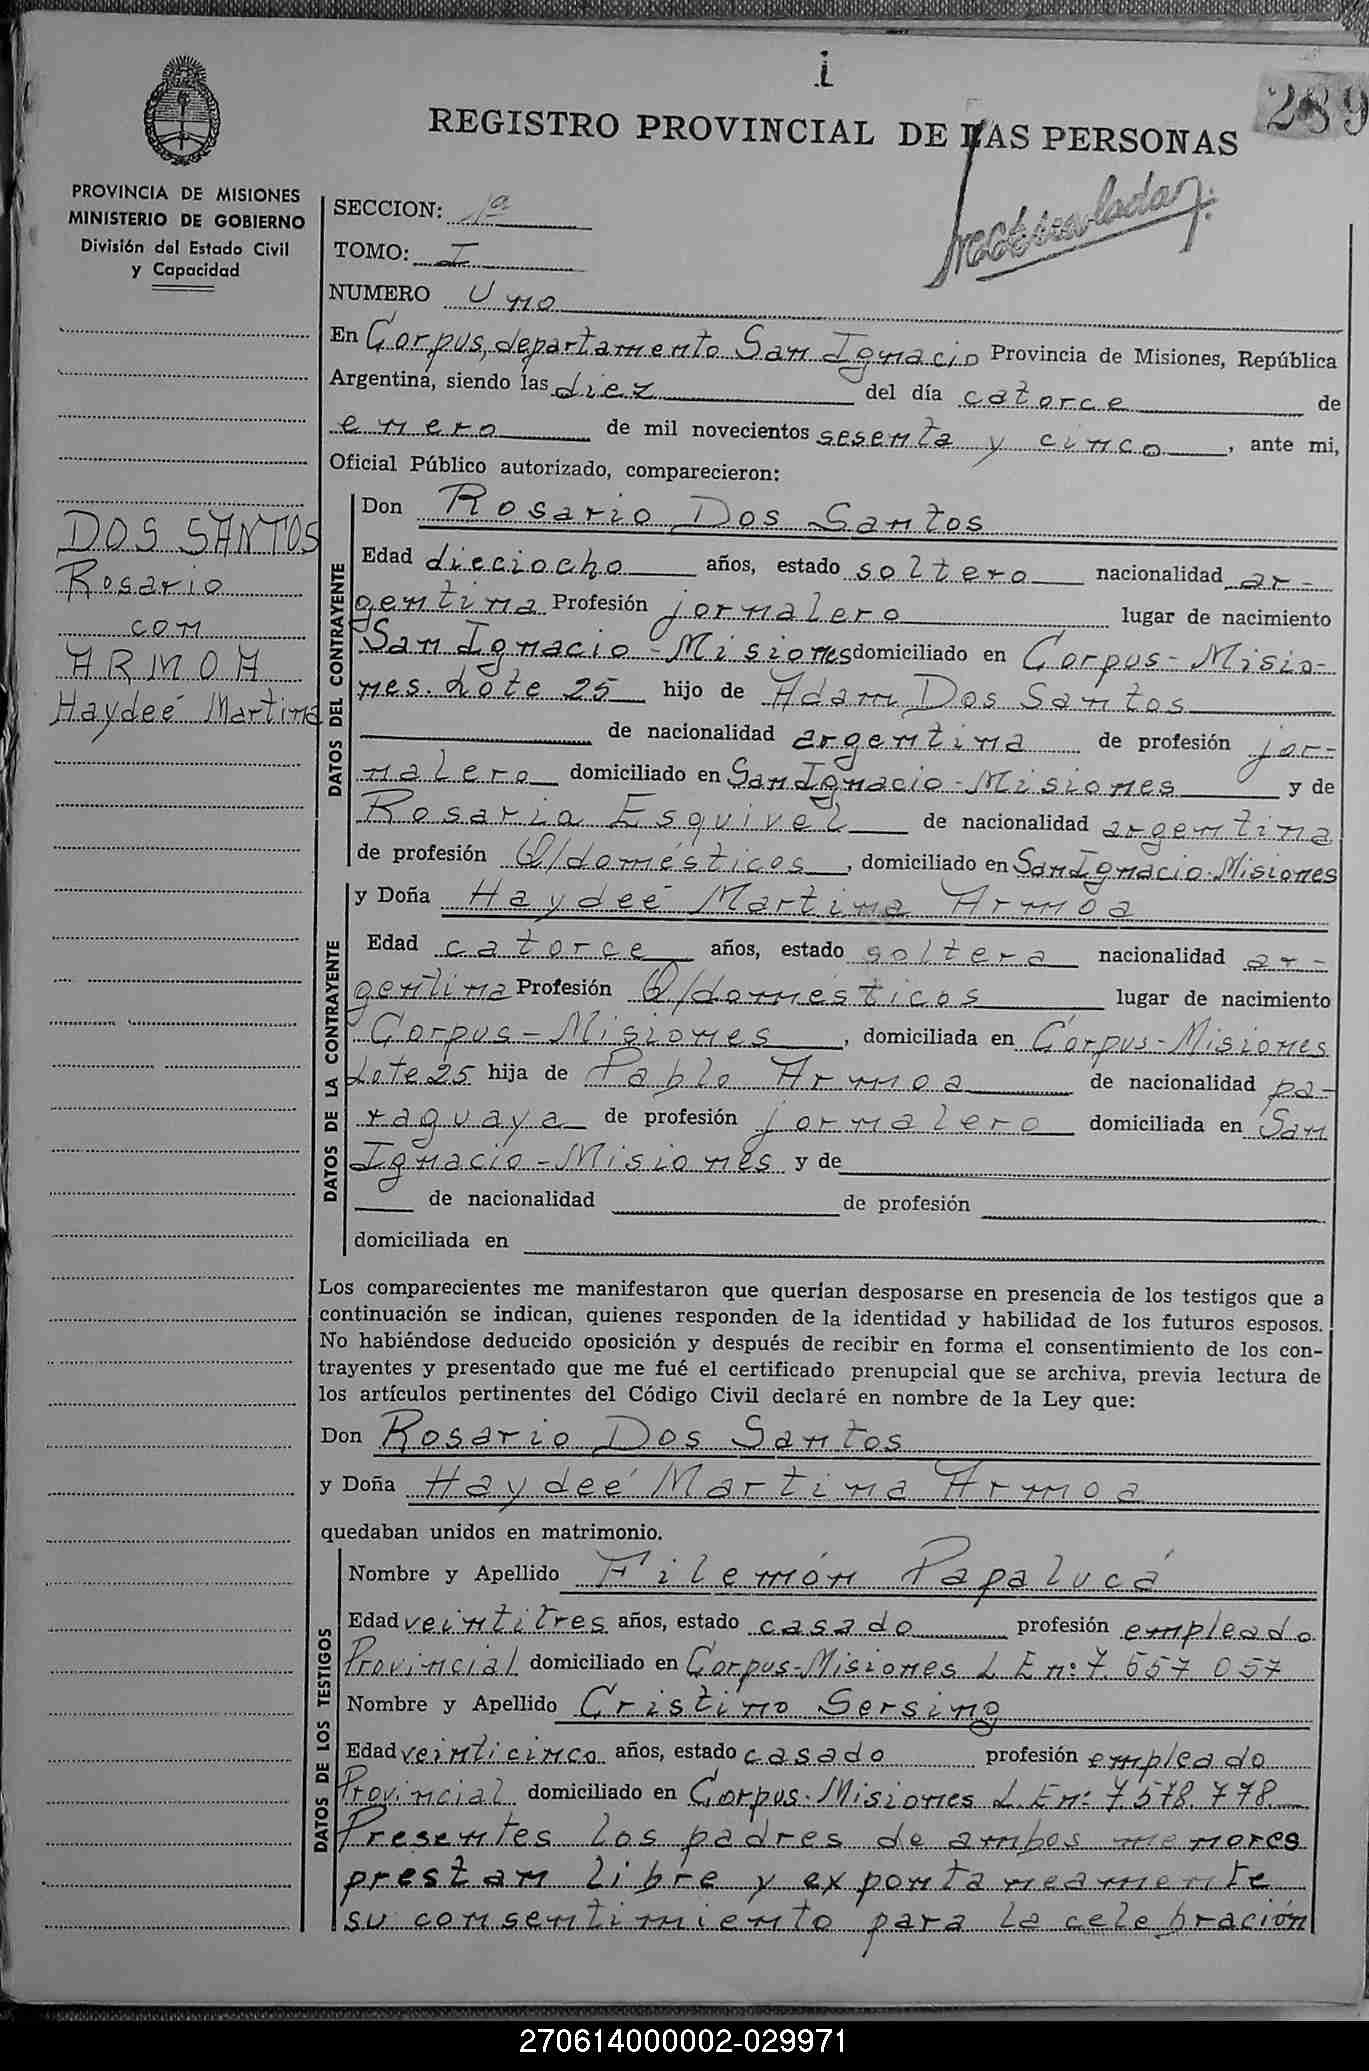 i
289
REGISTRO PROVINCIAL DE LAS PERSONAS
PROVINCIA DE MISIONES
MINISTERIO DE GOBIERNO
División del Estado Civil
y Capacidad
SECCION: 1ª
TOMO: I
NUMERO Uno
En Corpus, departamento San Ignacio Provincia de Misiones, República
Argentina, siendo las diez del día catorce de
enero de mil novecientos sesenta y cinco, ante mi,
Oficial Público autorizado, comparecieron:
DOS SANTOS
Rosario
con
ARMOA
Haydeé Martina
DATOS DEL CONTRAYENTE
Don Rosario Dos Santos
Edad dieciocho años, estado soltero nacionalidad ar-
gentina Profesión jornalero lugar de nacimiento
San Ignacio - Misiones domiciliado en Corpus - Misio-
nes. Lote 25 hijo de Adam Dos Santos
de nacionalidad argentina de profesión jor-
nalero domiciliado en San Ignacio - Misiones y de
Rosaria Esquivel de nacionalidad argentina
de profesión Q/domésticos, domiciliado en San Ignacio-Misiones
DATOS DE LA CONTRAYENTE
y Doña Haydeé Martina Armoa
Edad catorce años, estado soltera nacionalidad ar-
gentina Profesión Q/domésticos lugar de nacimiento
Corpus - Misiones, domiciliada en Corpus - Misiones
Lote 25 hija de Pablo Armoa de nacionalidad pa-
raguaya de profesión jornalero domiciliada en San
Ignacio - Misiones y de
de nacionalidad de profesión
domiciliada en
Los comparecientes me manifestaron que querían desposarse en presencia de los testigos que a
continuación se indican, quienes responden de la identidad y habilidad de los futuros esposos.
No habiéndose deducido oposición y después de recibir en forma el consentimiento de los con-
trayentes y presentado que me fué el certificado prenupcial que se archiva, previa lectura de
los artículos pertinentes del Código Civil declaré en nombre de la Ley que:
Don Rosario Dos Santos
y Doña Haydeé Martina Armoa
quedaban unidos en matrimonio.
DATOS DE LOS TESTIGOS
Nombre y Apellido Filemón Papalucá
Edad veintitres años, estado casado profesión empleado
Provincial domiciliado en Corpus-Misiones L En: 7 557 057
Nombre y Apellido Cristino Sersing
Edad veinticinco años, estado casado profesión empleado
Provincial domiciliado en Corpus-Misiones L.En: 7.578.778
Presentes los padres de ambos menores
prestan libre y expontaneamente
su consentimiento para la celebración
270614000002-029971